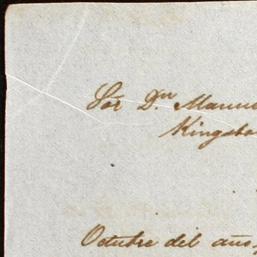 Sōr Dn Manu
Kingsto
Octubre del año